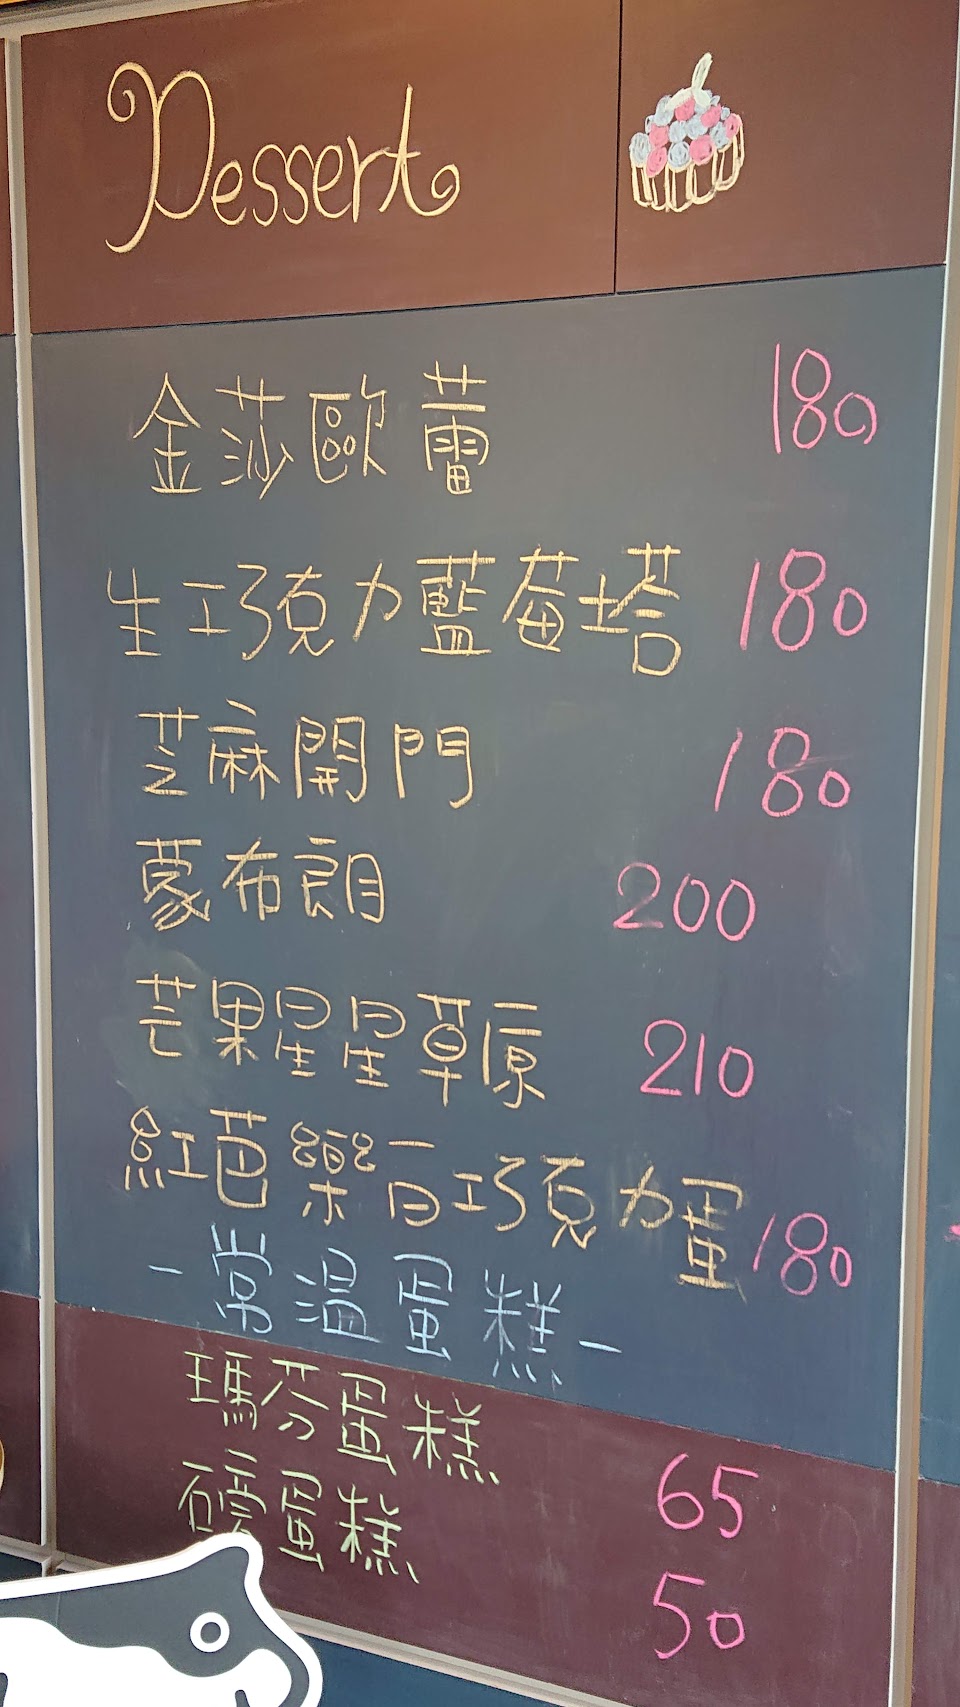 Dessert
金莎歐蕾 180
生巧克力藍莓塔 180
芝麻開門 180
蒙布朗 200
芒果星星草原 210
紅芭樂百巧克力蛋 180
-常溫蛋糕-
瑪芬蛋糕 65
磅蛋糕 50